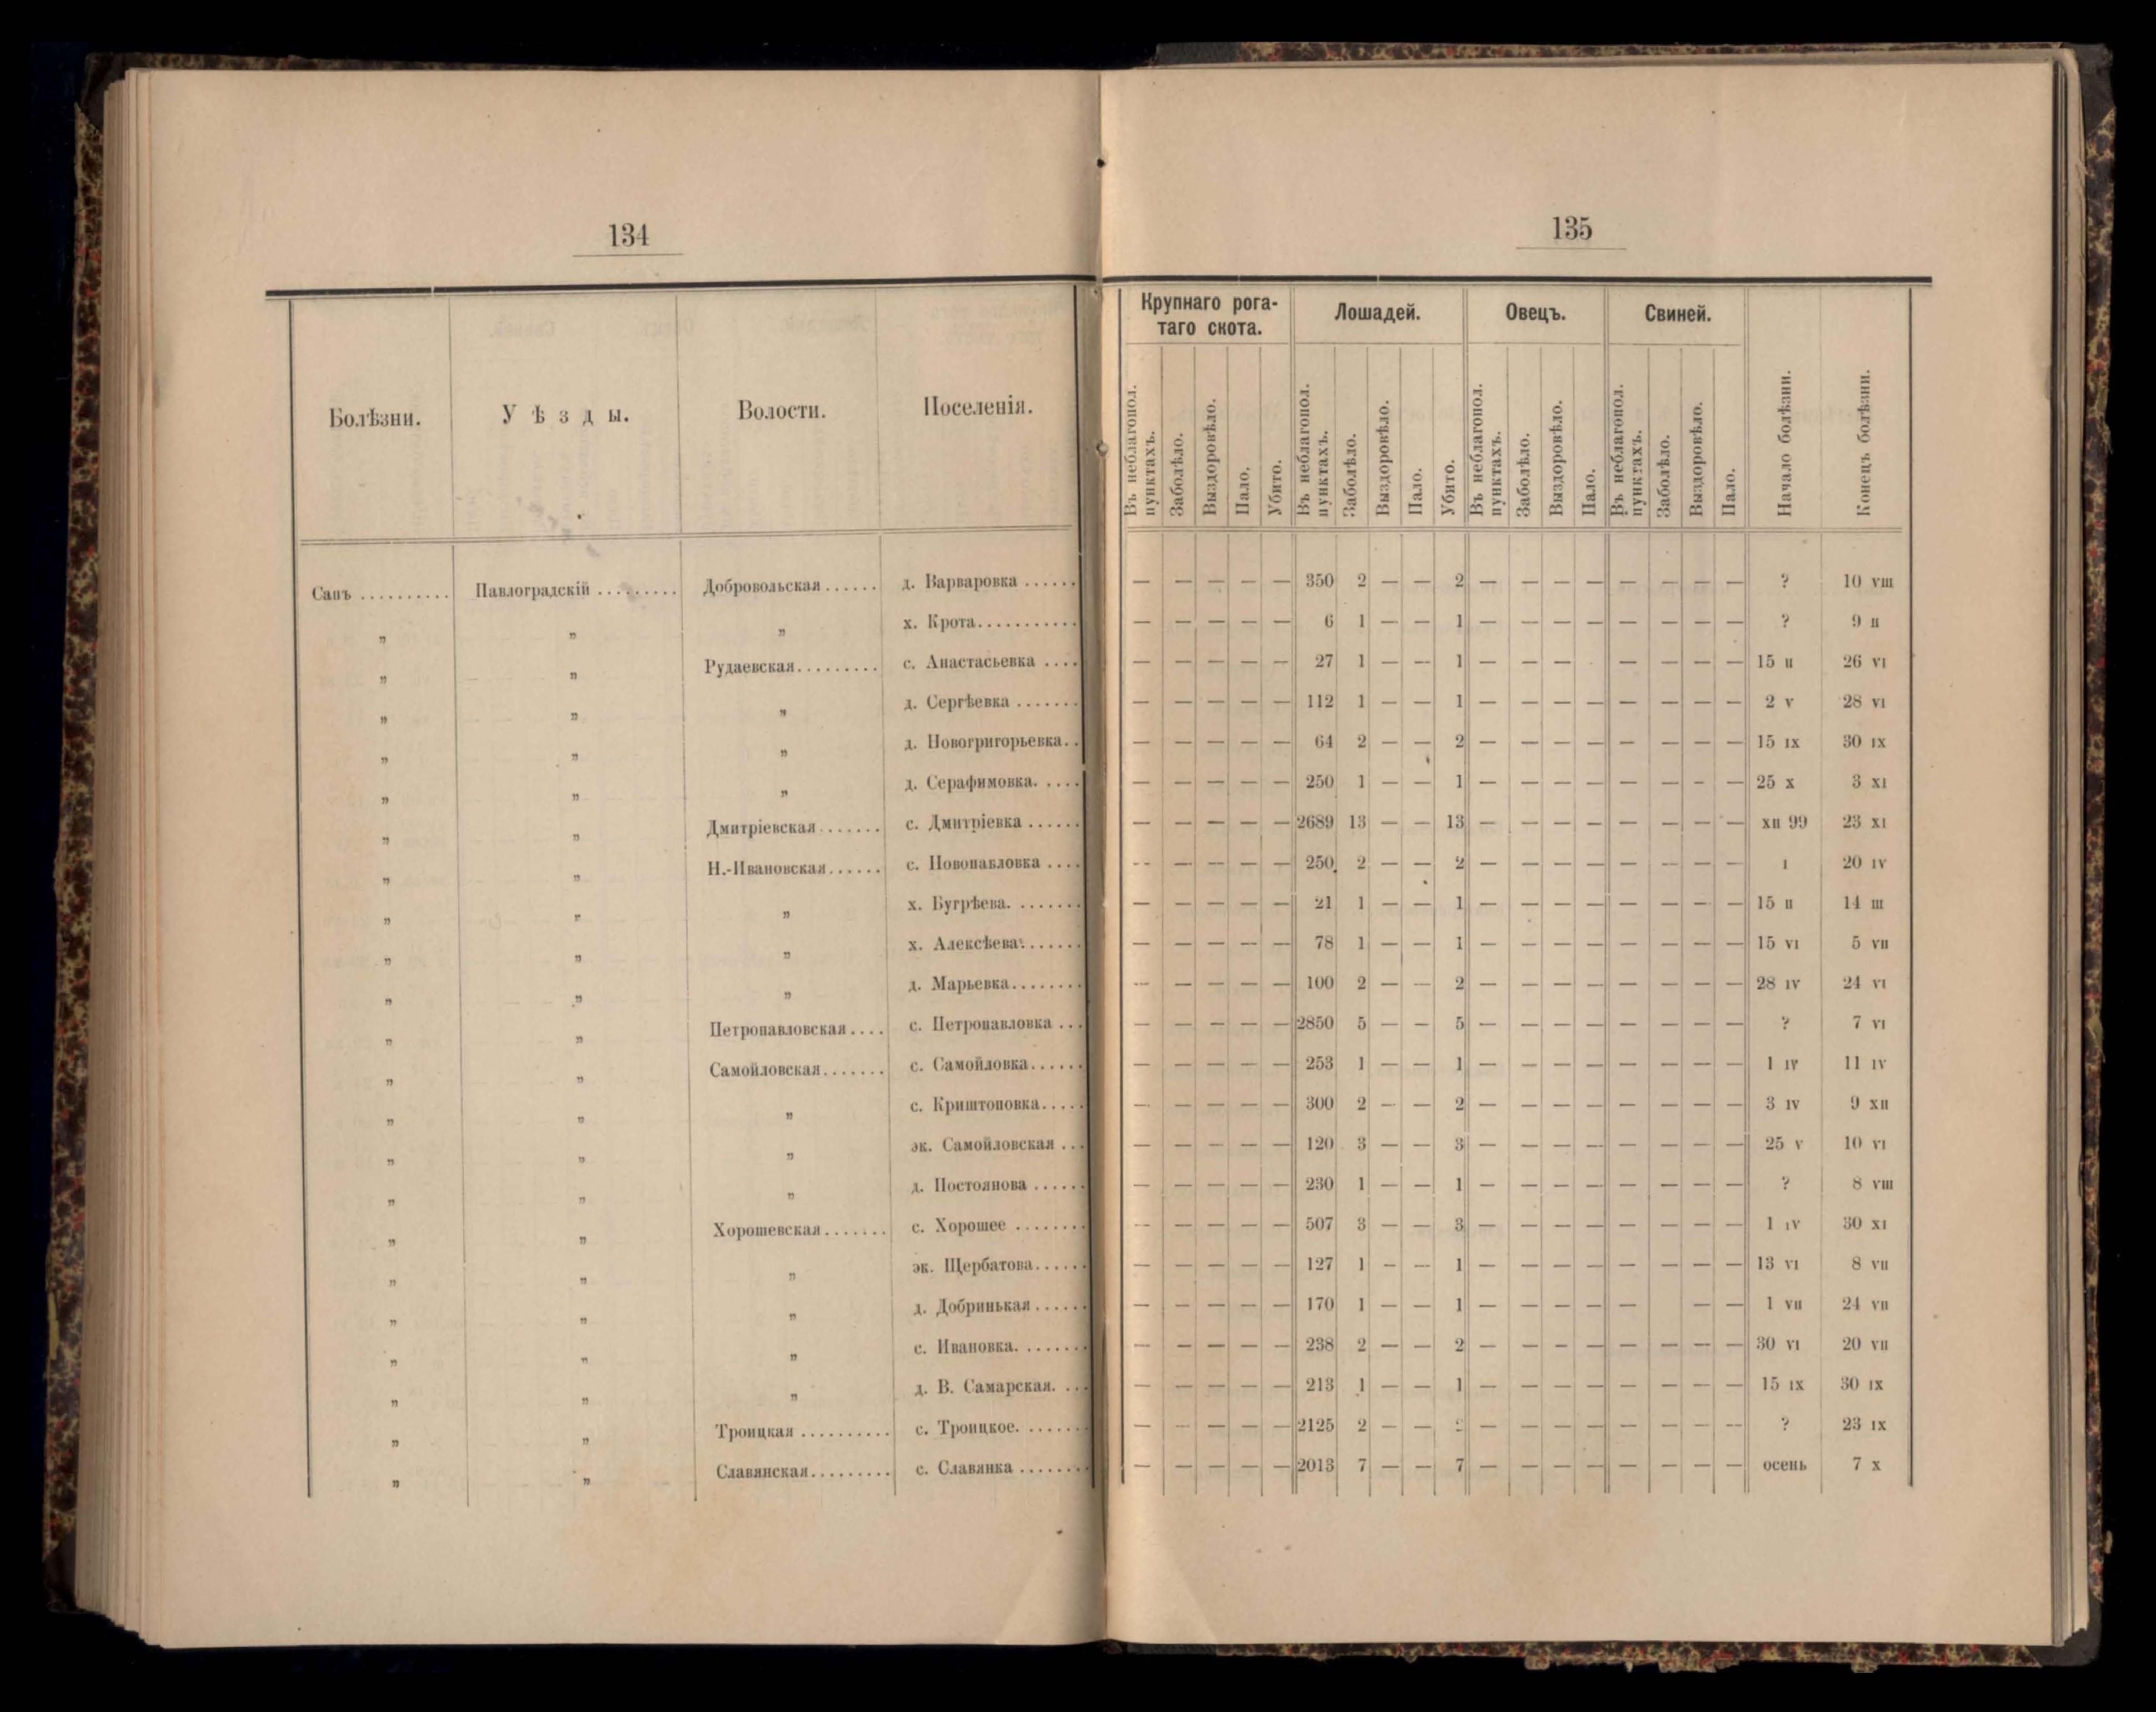 134
Болѣзни. У ѣ з д ы. Волости. Поселенія.
Сапъ .......... Павлоградскій ......... Добровольская...... д. Варваровка ......
„ „ „ х. Крота...........
„ „ Рудаевская......... с. Анастасьевка ....
„ „ „ д. Сергѣевка .......
„ „ „ д. Новогригорьевка..
„ „ „ д. Серафимовка. ....
„ „ Дмитріевская....... с. Дмитріевка ......
„ „ Н.-Ивановская...... с. Новопавловка ....
„ „ „ х. Бугрѣева. .......
„ „ „ х. Алексѣева.......
„ „ „ д. Марьевка........
„ „ Петропавловская.... с. Петропавловка ...
„ „ Самойловская....... с. Самойловка......
„ „ „ с. Криштоповка.....
„ „ „ эк. Самойловская ...
„ „ „ д. Постоянова ......
„ „ Хорошевская....... с. Хорошее ........
„ „ „ эк. Щербатова......
„ „ „ д. Добринькая ......
„ „ „ с. Ивановка. .......
„ „ „ д. В. Самарская. ...
„ „ Троицкая .......... с. Троицкое. .......
„ „ Славянская......... с. Славянка ........
135
Крупнаго рога-
таго скота. Лошадей. Овецъ. Свиней.
Въ неблагопол. пунктахъ. Заболѣло. Выздоровѣло. Пало. Убито. Въ неблагопол. пунктахъ. Заболѣло. Выздоровѣло. Пало. Убито. Въ неблагопол. пунктахъ. Заболѣло. Выздоровѣло. Пало. Въ неблагопол. пунктахъ. Заболѣло. Выздоровѣло. Пало. Начало болѣзни. Конецъ болѣзни.
— — — — — 350 2 — — 2 — — — — — — — — ? 10 VIII
— — — — — 6 1 — — 1 — — — — — — — — ? 9 II
— — — — — 27 1 — — 1 — — — — — — — 15 II 26 VI
— — — — — 112 1 — — 1 — — — — — — — — 2 V 28 VI
— — — — — 64 2 — — 2 — — — — — — — — 15 IX 30 IX
— — — — — 250 1 — — 1 — — — — — — — — 25 X 3 XI
— — — — — 2689 13 — — 13 — — — — — — — — XII 99 23 XI
— — — — — 250 2 — — 2 — — — — — — — — I 20 IV
— — — — — 21 1 — — 1 — — — — — — — — 15 II 14 III
— — — — — 78 1 — — 1 — — — — — — — — 15 VI 5 VII
— — — — — 100 2 — — 2 — — — — — — — — 28 IV 24 VI
— — — — — 2850 5 — — 5 — — — — — — — — ? 7 VI
— — — — — 253 1 — — 1 — — — — — — — — 1 IV 11 IV
— — — — — 300 2 — — 2 — — — — — — — — 3 IV 9 XII
— — — — — 120 3 — — 3 — — — — — — — — 25 V 10 VI
— — — — — 230 1 — — 1 — — — — — — — — ? 8 VIII
— — — — — 507 3 — — 3 — — — — — — — — 1 IV 30 XI
— — — — — 127 1 — — 1 — — — — — — — — 13 VI 8 VII
— — — — — 170 1 — — 1 — — — — — — — 1 VII 24 VII
— — — — — 238 2 — — 2 — — — — — — — — 30 VI 20 VII
— — — — — 213 1 — — 1 — — — — — — — — 15 IX 30 IX
— — — — — 2125 2 — — — — — — — — — — ? 23 IX
— — — — — 2013 7 — — 7 — — — — — — — — осень 7 X